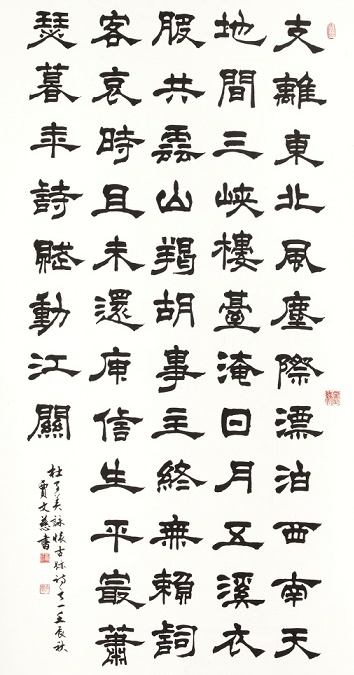 支離東北風塵際漂泊西南天
地間三峽樓臺淹日月五溪衣
服共雲山羯胡事主終無賴詞
客哀時且未還庾信生平最蕭
瑟暮年詩賦動江關
杜子美詠懷古跡詩之一壬辰秋
賈文慈書